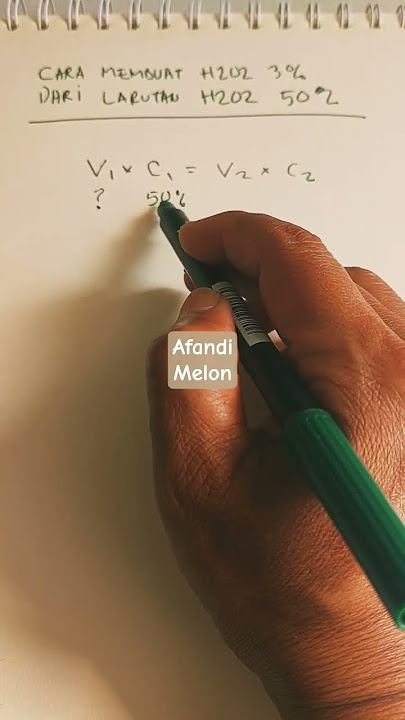 CARA MEMBUAT H2O2 3%
DARI LARUTAN H2O2 50%
V₁ × C₁ = V₂ × C₂
? 50%
Afandi
Melon